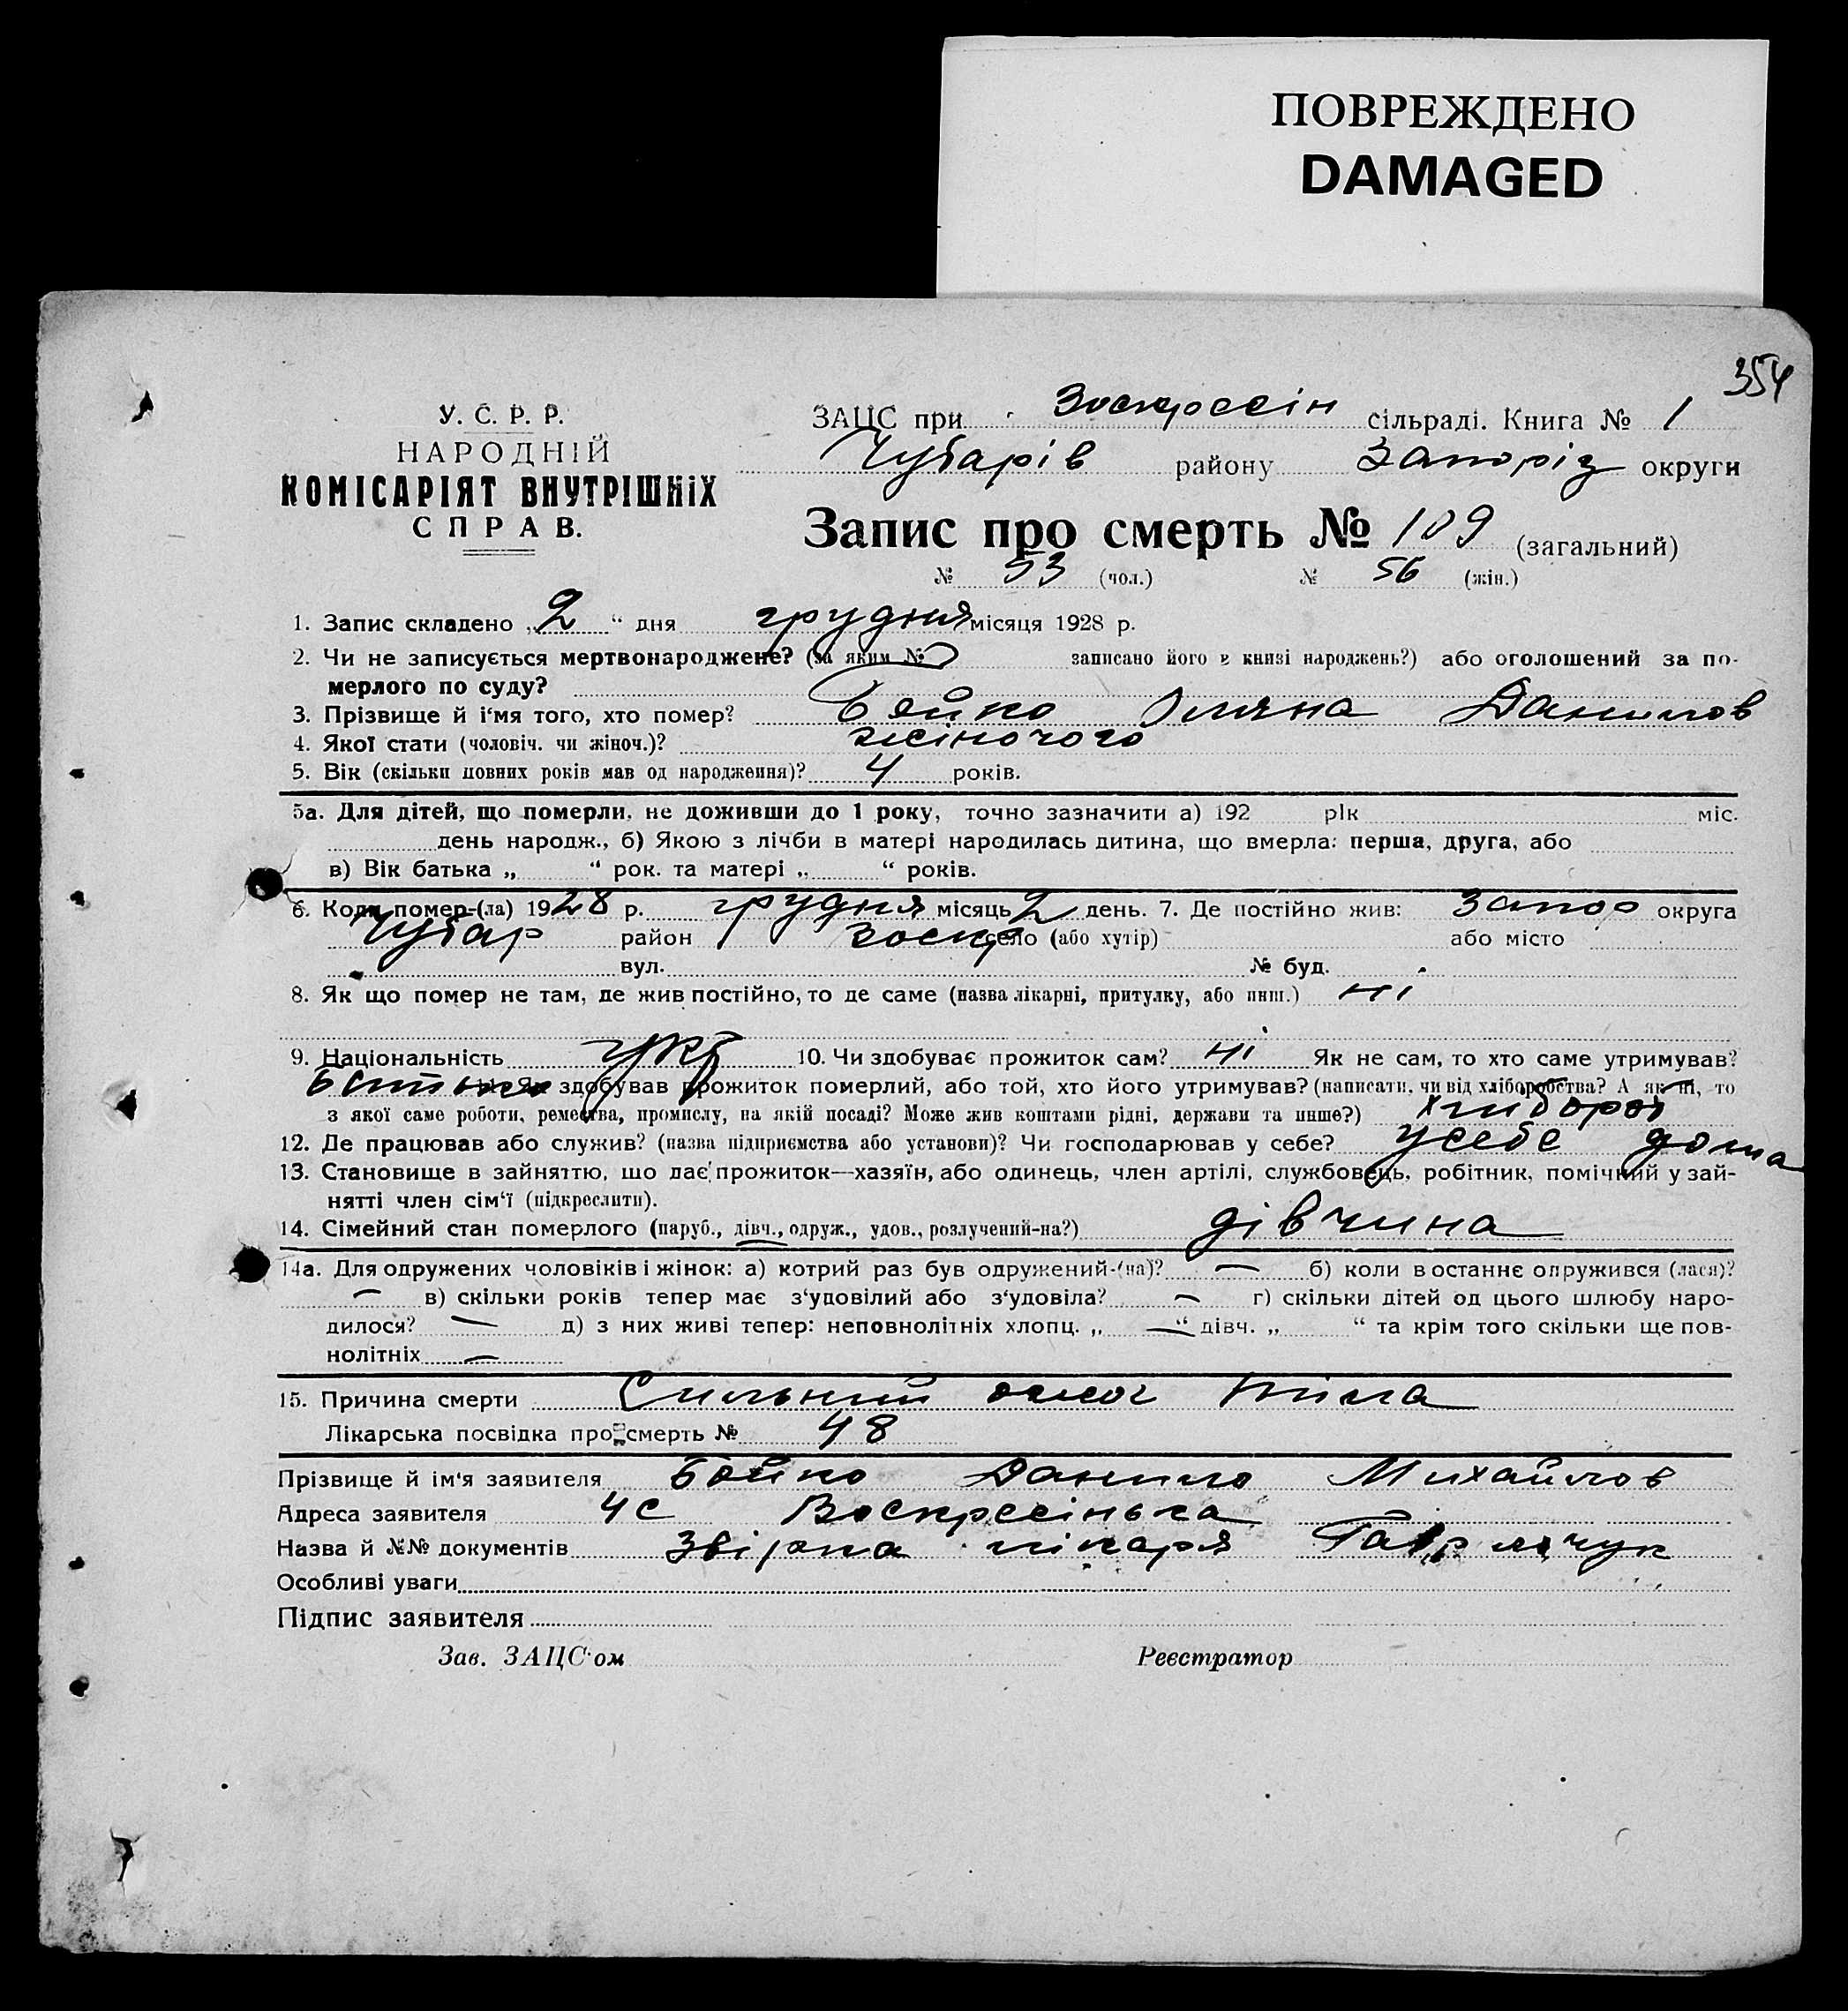 ПОВРЕЖДЕНО
DAMAGED
354
У. С. Р. Р.
НАРОДНІЙ
КОМІСАРІЯТ ВНУТРІШНІХ
СПРАВ.
ЗАЦС при Воскресін сільраді. Книга № 1
Чубарів району Запоріз округи
Запис про смерть № 109 (загальний)
№ 53 (чол.) № 56 (жін.)
1. Запис складено „2“ дня грудня місяця 1928 р.
2. Чи не записується мертвонароджене? (за яким № записано його в книзі народжень?) або оголошений за по-
мерлого по суду?
3. Прізвище й і‘мя того, хто помер? Бойко Данилов
4. Якої стати (чоловіч. чи жіноч.)? жіночого
5. Вік (скільки повних років мав од народження)? 4 років.
5а. Для дітей, що померли, не доживши до 1 року, точно зазначити а) 192 рік міс.
день народж., б) Якою з лічби в матері народилась дитина, що вмерла: перша, друга, або
в) Вік батька „ “ рок. та матері „ “ років.
6. Коли помер-(ла) 1928 р. грудня місяць 2 день. 7. Де постійно жив: Запор округа
Чубар район Воскр село (або хутір) або місто
вул. № буд.
8. Як що помер не там, де жив постійно, то де саме (назва лікарні, притулку, або инш.) ні
9. Національність укр 10. Чи здобуває прожиток сам? ні Як не сам, то хто саме утримував?
батько 11. Як здобував прожиток померлий, або той, хто його утримував? (написати, чи від хліборобства? А як ні, то
з якої саме роботи, ремества, промислу, на якій посаді? Може жив коштами рідні, держави та инше?) хлибороб
12. Де працював або служив? (назва підприємства або установи)? Чи господарював у себе? у себе дома
13. Становище в зайняттю, що дає прожиток—хазяїн, або одинець, член артілі, службовець, робітник, помічний у зай-
нятті член сім‘ї (підкреслити).
14. Сімейний стан померлого (паруб., дівч., одруж., удов., розлучений-на?) дівчина
14а. Для одружених чоловіків і жінок: а) котрий раз був одружений-(на)? — б) коли востаннє одружився (лася)?
— в) скільки років тепер має з‘удовілий або з‘удовіла? — г) скільки дітей од цього шлюбу наро-
дилося? — д) з них живі тепер: неповнолітніх хлопц. „ — “ дівч. „ “ та крім того скільки ще пов-
нолітніх —
15. Причина смерти Сильний ожог тіла
Лікарська посвідка про смерть № 48
Прізвище й ім‘я заявителя Бойко Данило Михайлов
Адреса заявителя Воскресінька
Назва й №№ документів лікаря
Особливі уваги
Підпис заявителя
Зав. ЗАЦС‘ом Реєстратор